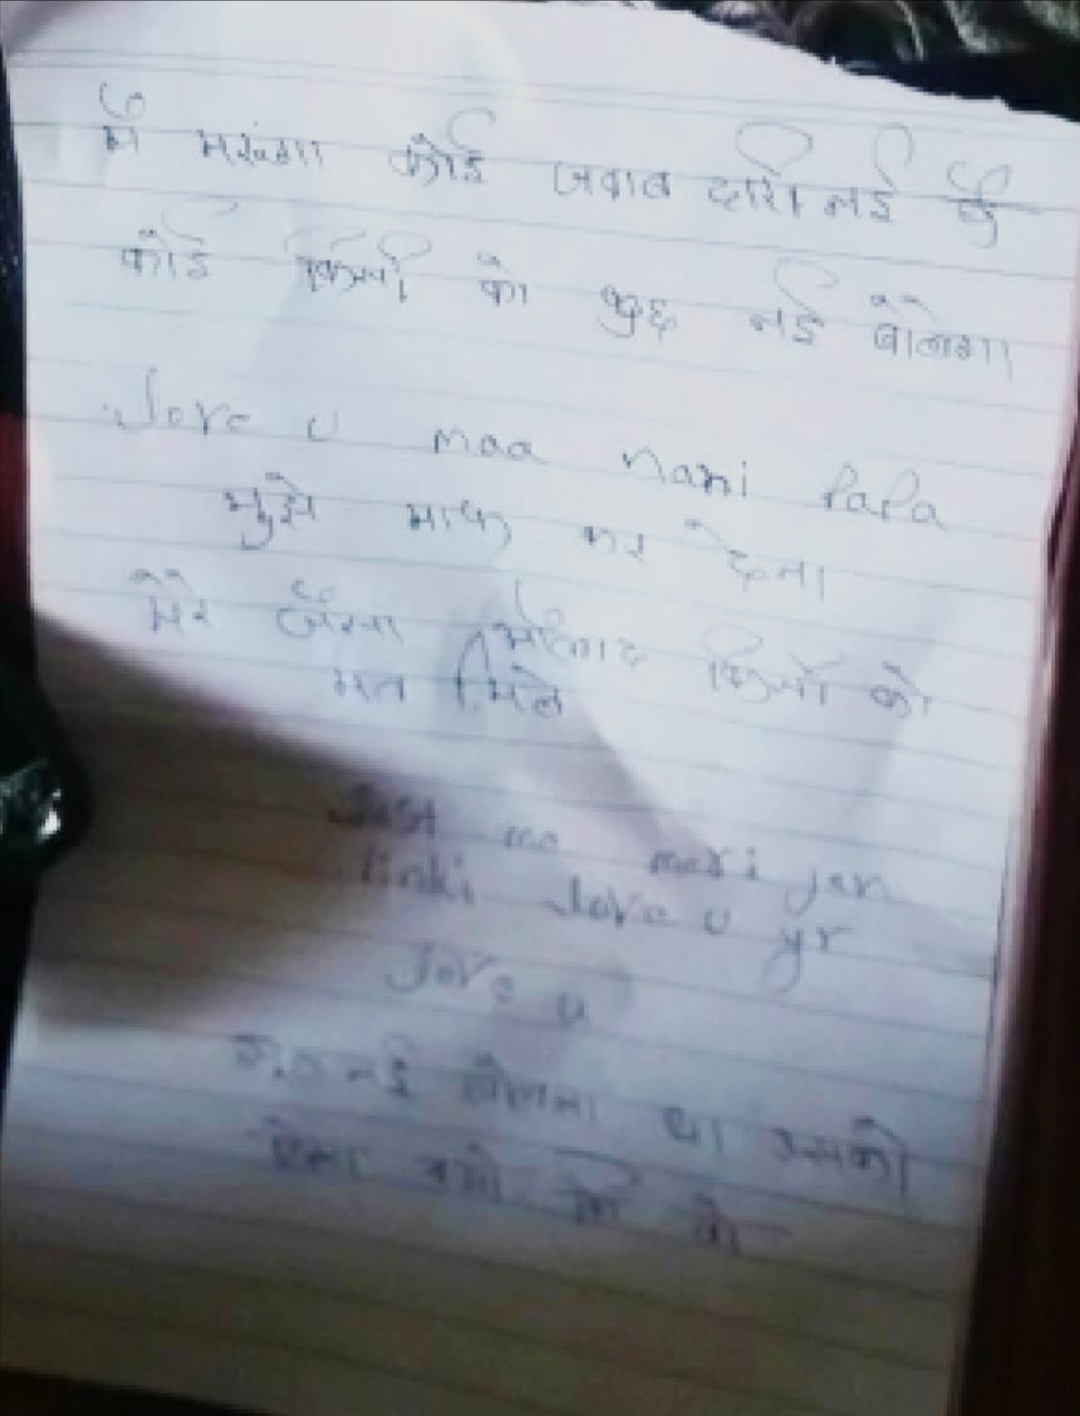 में मरूंगा कोई जवाब दारी नई है
कोई किसी को कुछ नई बोलेगा
Love u maa nani PaPa
मुझे माफ कर देना
मेरे जैसा औलाद किसी को
मत मिले
Just me meri jan
Pinki Love u yr
Love u
नई बोलना था उसको
ऐसा